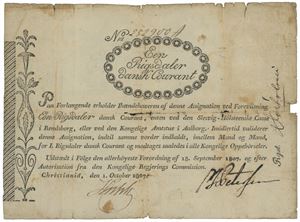 No
Een
Rigsdaler
Dansk Courant
Paa Forlangende erholder Ihændehaveren af denne Assignation ved Forevisning
Een Rigsdaler dansk Courant, enten ved den Slesvig-Holsteenske Casse
i Rendsborg, eller ved den Kongelige Amstue i Aalborg. Imidlertid validerer
denne Assignation, indtil samme vorder indfriet, imellem Mand og Mand,
for 1 Rigsdaler dansk Courant og modtages saaledes i alle Kongelige Oppebørsler.
Udstædt i Følge den allerhøieste Forordning af 18. September 1807, og efter
Autorisation fra den Kongelige Regjerings Commission.
Christiania, den 1. October 1807.